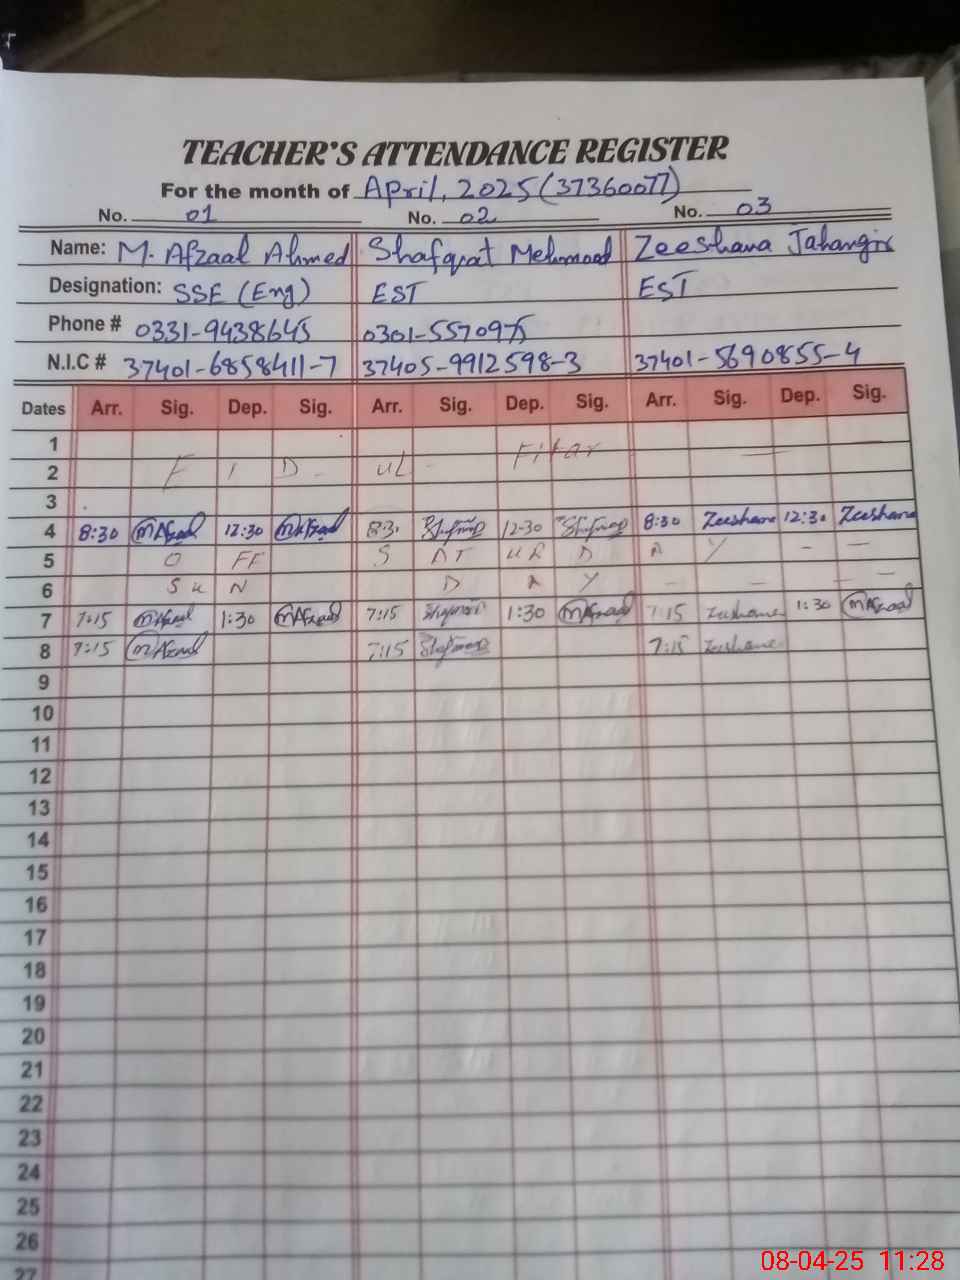 TEACHER'S ATTENDANCE REGISTER
For the month of April, 2025 (37360077)
No. 01 No. 02 No. 03
Name: M. Afzaal Ahmed Shafqat Mehmood Zeeshana Jahangir
Designation: SSE (Eng) EST EST
Phone # 0331-9438645 0301-5570975
N.I.C # 37401-6858411-7 37405-9912598-3 37401-5690855-4
Dates Arr. Sig. Dep. Sig. Arr. Sig. Dep. Sig. Arr. Sig. Dep. Sig.
1
2 E I D - UL - Fitar
3
4 8:30 MAfzaal 12:30 MAfzaal 8:30 12-30 8:30 Zeeshana 12:30 Zeeshana
5 OFF SATURDAY - -
6 SUN DAY - - - -
7 7:15 MAfzaal 1:30 MAfzaal 7:15 1:30 MAfzaal 7:15 Zeeshana 1:30 MAfzaal
8 7:15 MAfzaal 7:15 7:15 Zeeshana
9
10
11
12
13
14
15
16
17
18
19
20
21
22
23
24
25
26
27
08-04-25 11:28